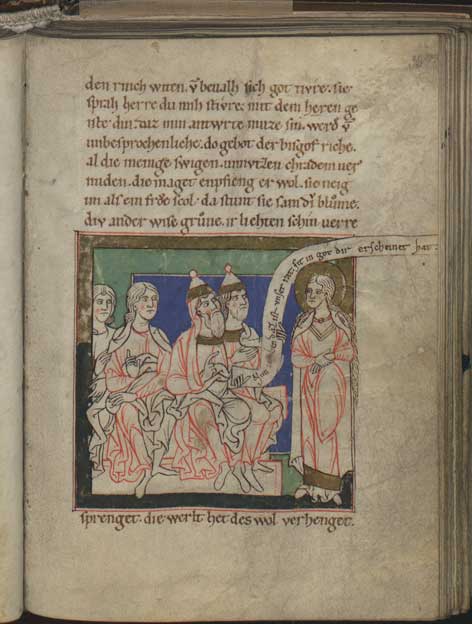 den rinch witen. vn̄ bevalh sich got tivre. sie
sprah herre du mih stivre. mit dem heren ge
iste din. daz min antwrte nutze sin. werdē vn̄
unbesprochenliche. do gebot der bisgof riche.
al die menige swigen. unnutzen chradem ver
miden. die maget enpfieng er wol. sie neig
im als ein frowe scol. da stunt sie sam dˢ blůme.
div ander wise grůne. ir liehten schin verre
unser rat. sit in got dir erscheinet hat.
sprenget. die werlt het des wol verhenget.